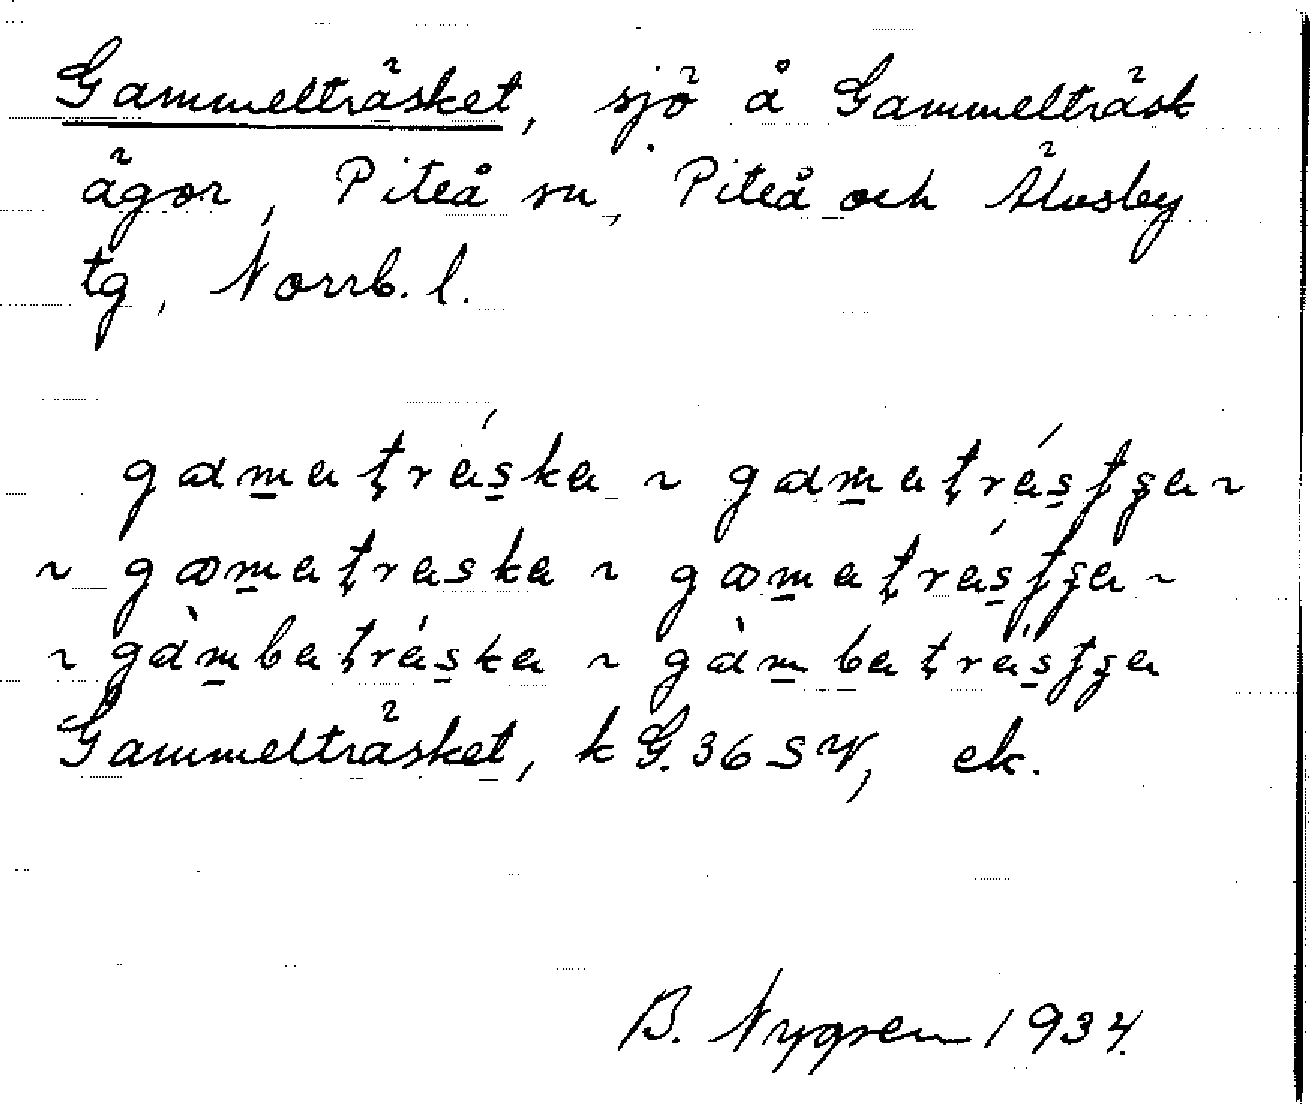 Gammelträsket, sjö å Gammelträsk
ägor, Piteå sn, Piteå och Älvsby
tg, Norrb. l.
gamatráska ~ gamatrásʃʂa ~
~ gamatraska ~ gamatrásʃʂa ~
~ gàmbatráska ~ gàmbatrásʃʂa
Gammelträsket, k G. 36 SV, ek.
B. Nygren 1934.